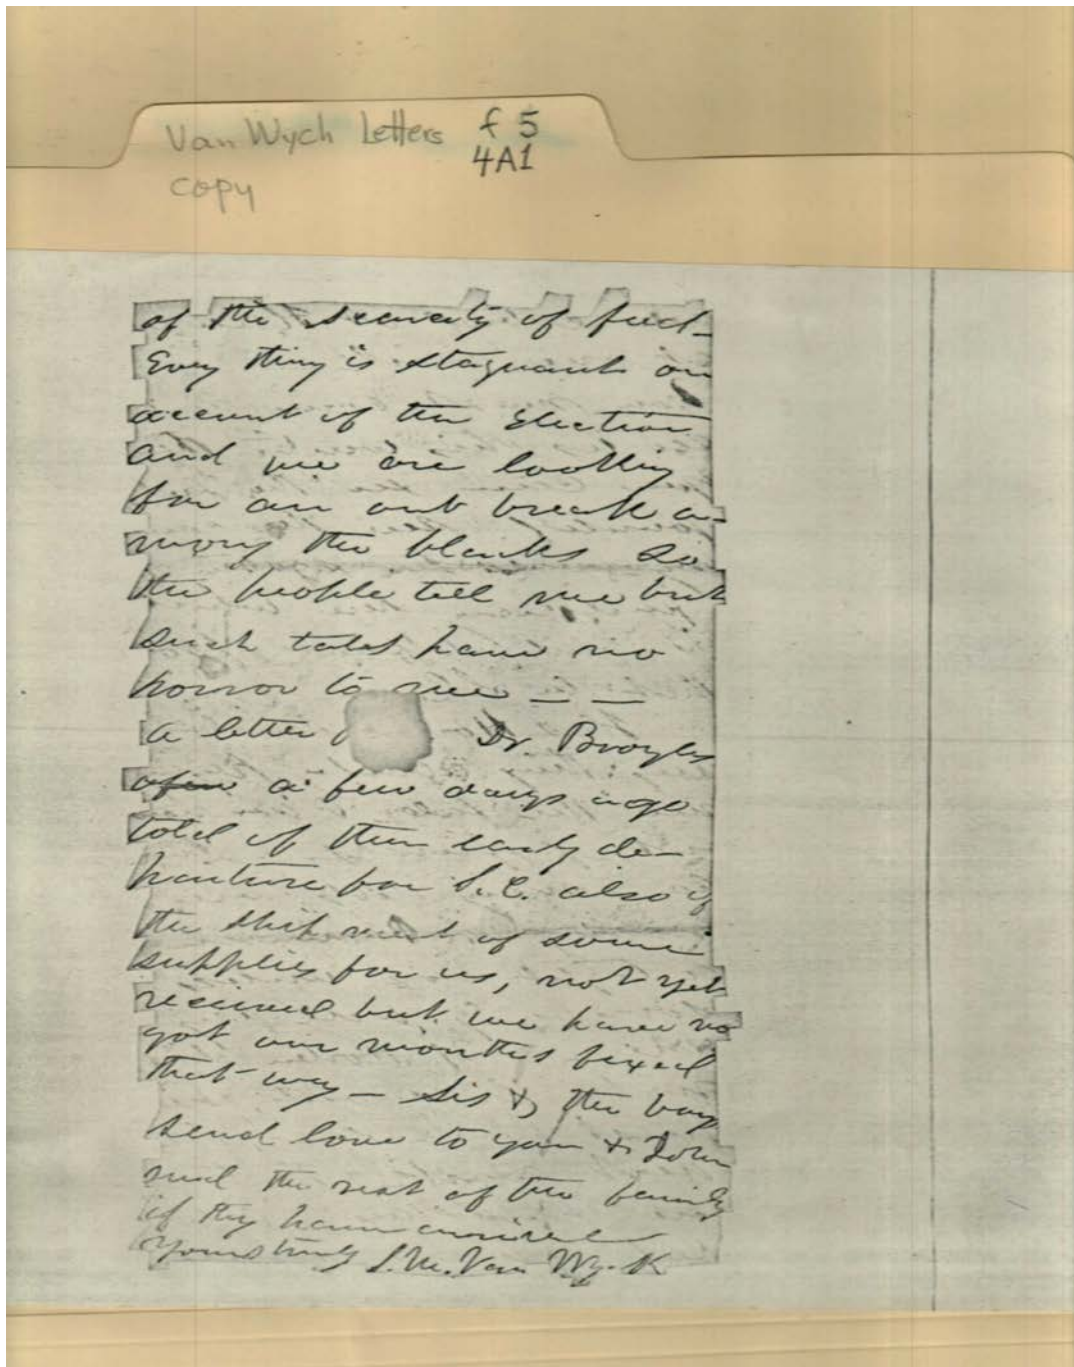 Van Wych Letters f 5
4A1
copy
of the scarcity of fuel
Every thing is stagnant on
account of the Election
and we are looking
for an out break a-
mong the blacks so
the people tell me but
such tales have no
horror to me — —
a letter Dr. Broyles
a few days ago
told of their early de-
parture for S.C. also of
the ship ment of some
supplies for us, not yet
received but we have no
got our months fixed
that way — Sis & the boys
send love to you & John
and the rest of the family
if they have arrived
Yours truly S.M. Van Wyck